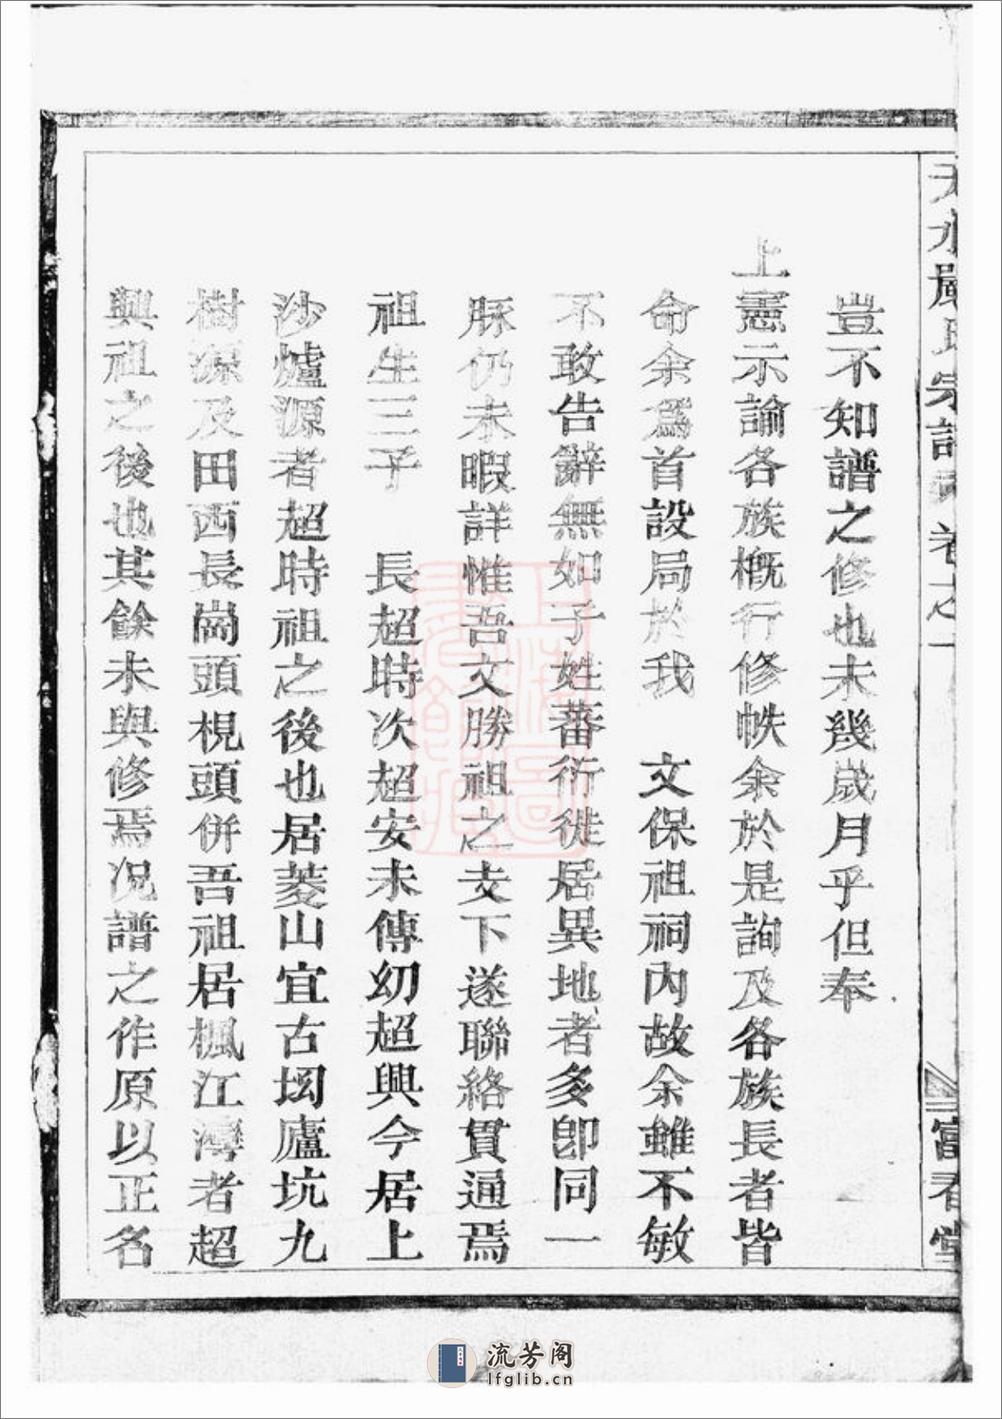 天水嚴氏宗譜 卷之一 富春堂
豈不知譜之修也未幾歲月乎但奉
上憲示諭各族概行修帙余於是詢及各族長者皆
命余為首設局於我 文保祖祠內故余雖不敏
不敢告辭無如子姓蕃衍徙居異地者多卽同一
脈仍未暇詳惟吾文勝祖之支下遂聯絡貫通焉
祖生三子 長超時次超安未傳幼超興今居上
沙爐源者超時祖之後也居菱山宜古坳廬坑九
樹源及田西長崗頭梘頭併吾祖居楓江灣者超
興祖之後也其餘未與修焉況譜之作原以正名
上海圖書館藏
流芳阁
lfglib.cn